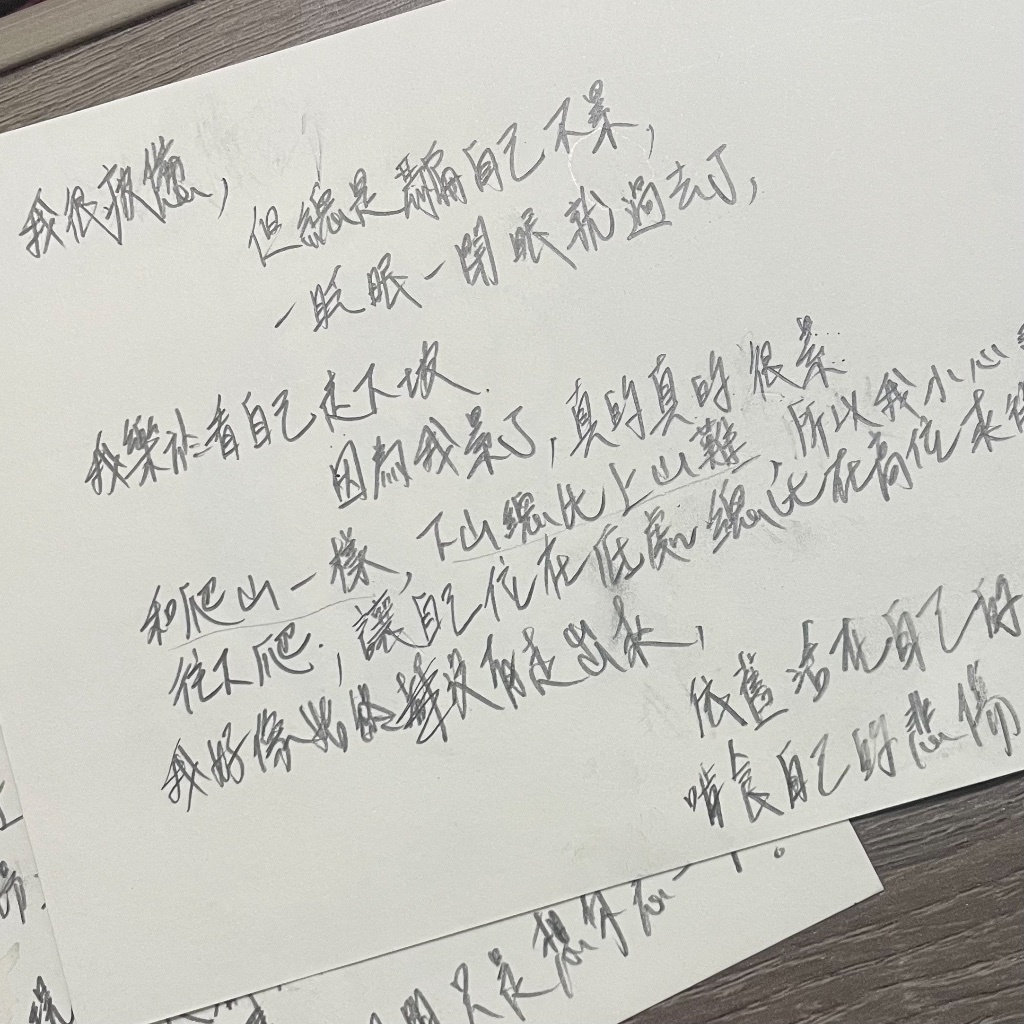 我很疲憊，
但總是騙自己不累，
一眨眼一閉眼就過去了，
我樂於看自己走下坡
因為我累了，真的真的很累
和爬山一樣，下山總比上山難，所以我小心
往下爬，讓自己位在低處總比在高位來得
我好像始終沒有走出來，
依舊活在自己的
啃食自己的悲傷
只是想休息一下。